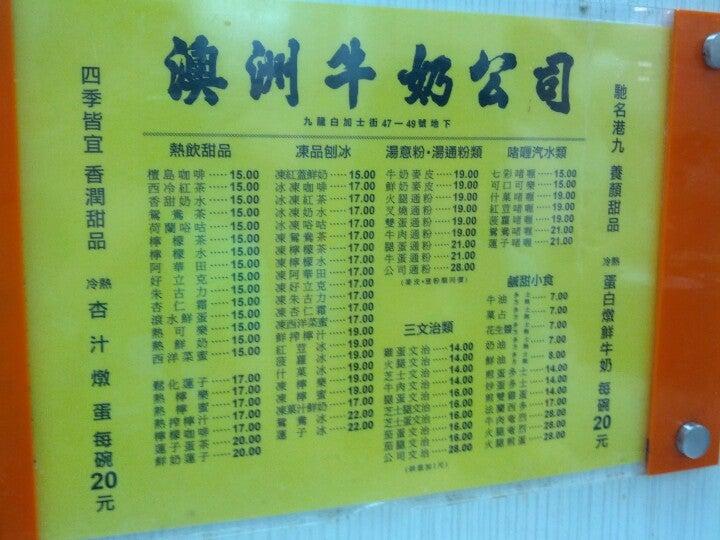 澳洲牛奶公司
九龍白加士街47－49號地下
四季皆宜 香潤甜品
冷熱 杏汁燉蛋 每碗20元
熱飲甜品
檀島咖啡……15.00
西冷紅茶……15.00
香甜奶水……15.00
鴛鴦茶……15.00
荷蘭唂咕……15.00
檸檬茶……15.00
檸檬水……15.00
阿華田……15.00
好立克……15.00
朱古力……15.00
杏仁霜……15.00
滾水鮮蛋……15.00
熱可樂……15.00
熱鮮奶……15.00
西洋菜蜜……15.00
鬆化蓮子……17.00
熱檸樂……17.00
熱檸蜜……17.00
熱搾檸汁……17.00
檸檬咖啡……17.00
蓮子蛋茶……20.00
鮮奶蓮子……20.00
凍品刨冰
凍紅蓋鮮奶……15.00
冰凍咖啡……17.00
冰凍紅茶……17.00
冰凍奶水……17.00
冰凍唂咕……17.00
凍鴛鴦茶……17.00
凍檸檬茶……17.00
凍檸檬水……17.00
凍阿華田……17.00
凍好立克……17.00
凍朱古力……17.00
凍杏仁霜……17.00
凍西洋菜蜜……17.00
鮮搾檸汁……19.00
紅荳冰……19.00
菠蘿冰……19.00
什菓冰……19.00
凍檸樂……19.00
凍檸蜜……19.00
凍菓汁鮮奶……19.00
鴛鴦冰……22.00
蓮子冰……22.00
湯意粉·湯通粉類
牛奶麥皮……19.00
鮮奶麥皮……19.00
火腿通粉……19.00
叉燒通粉……19.00
雙蛋通粉……19.00
牛肉通粉……19.00
腿蛋通粉……21.00
牛蛋通粉……21.00
公司通粉……28.00
(麥皮·意粉類同價)
三文治類
雞蛋文治……14.00
火腿文治……14.00
芝士文治……14.00
牛肉文治……14.00
腿蛋文治……16.00
芝士腿文治……16.00
芝士蛋文治……16.00
茄蛋文治……16.00
茄腿文治……16.00
公司文治……28.00
(烘底加1元)
啫喱汽水類
七彩啫喱……15.00
可口可樂……15.00
什菓啫喱……19.00
紅荳啫喱……19.00
菠蘿啫喱……19.00
鴛鴦啫喱……21.00
蓮子啫喱……21.00
鹹甜小食
牛油……7.00
菓占……7.00
花生醬……7.00
奶油……7.00
鮮油……8.00
煎蛋多士……14.00
炒蛋多士……14.00
煎雙蛋……14.00
法蘭西多……14.00
牛肉奄烈……28.00
火腿奄烈……28.00
馳名港九 養顏甜品
冷熱 蛋白燉鮮牛奶 每碗20元